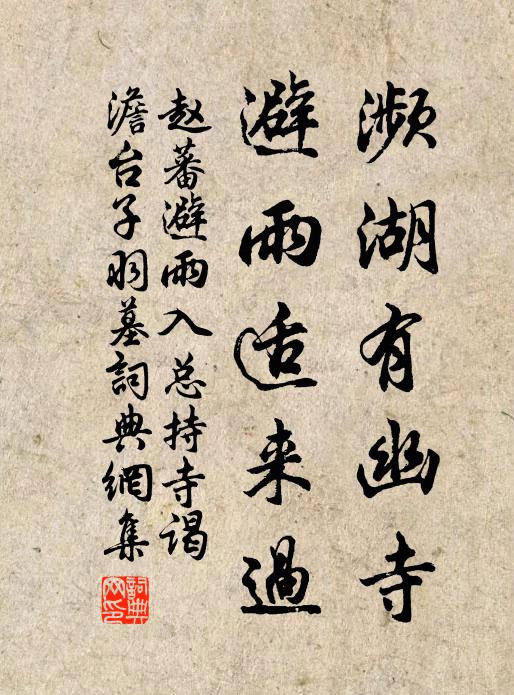 濒湖有幽寺
避雨适来過
赵蕃避雨入总持寺谒
澹台子羽墓詞典網集
詞典网印